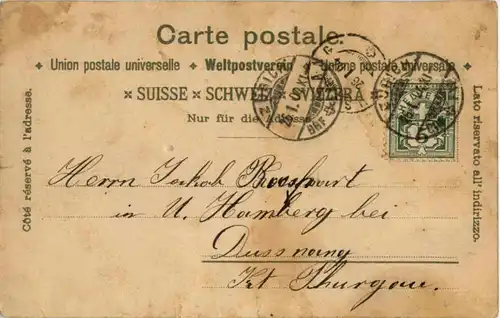 Carte postale.
Union postale universelle Weltpostverein Unione postale universale
SUISSE SCHWEIZ SVIZZERA
Nur für die Adresse.
Côté réservé à l'adresse.
Lato riservato all' indirizzo.
Herrn Jakob Bosshart
in U. Hamberg bei
Dussnang
Kt. Thurgau.